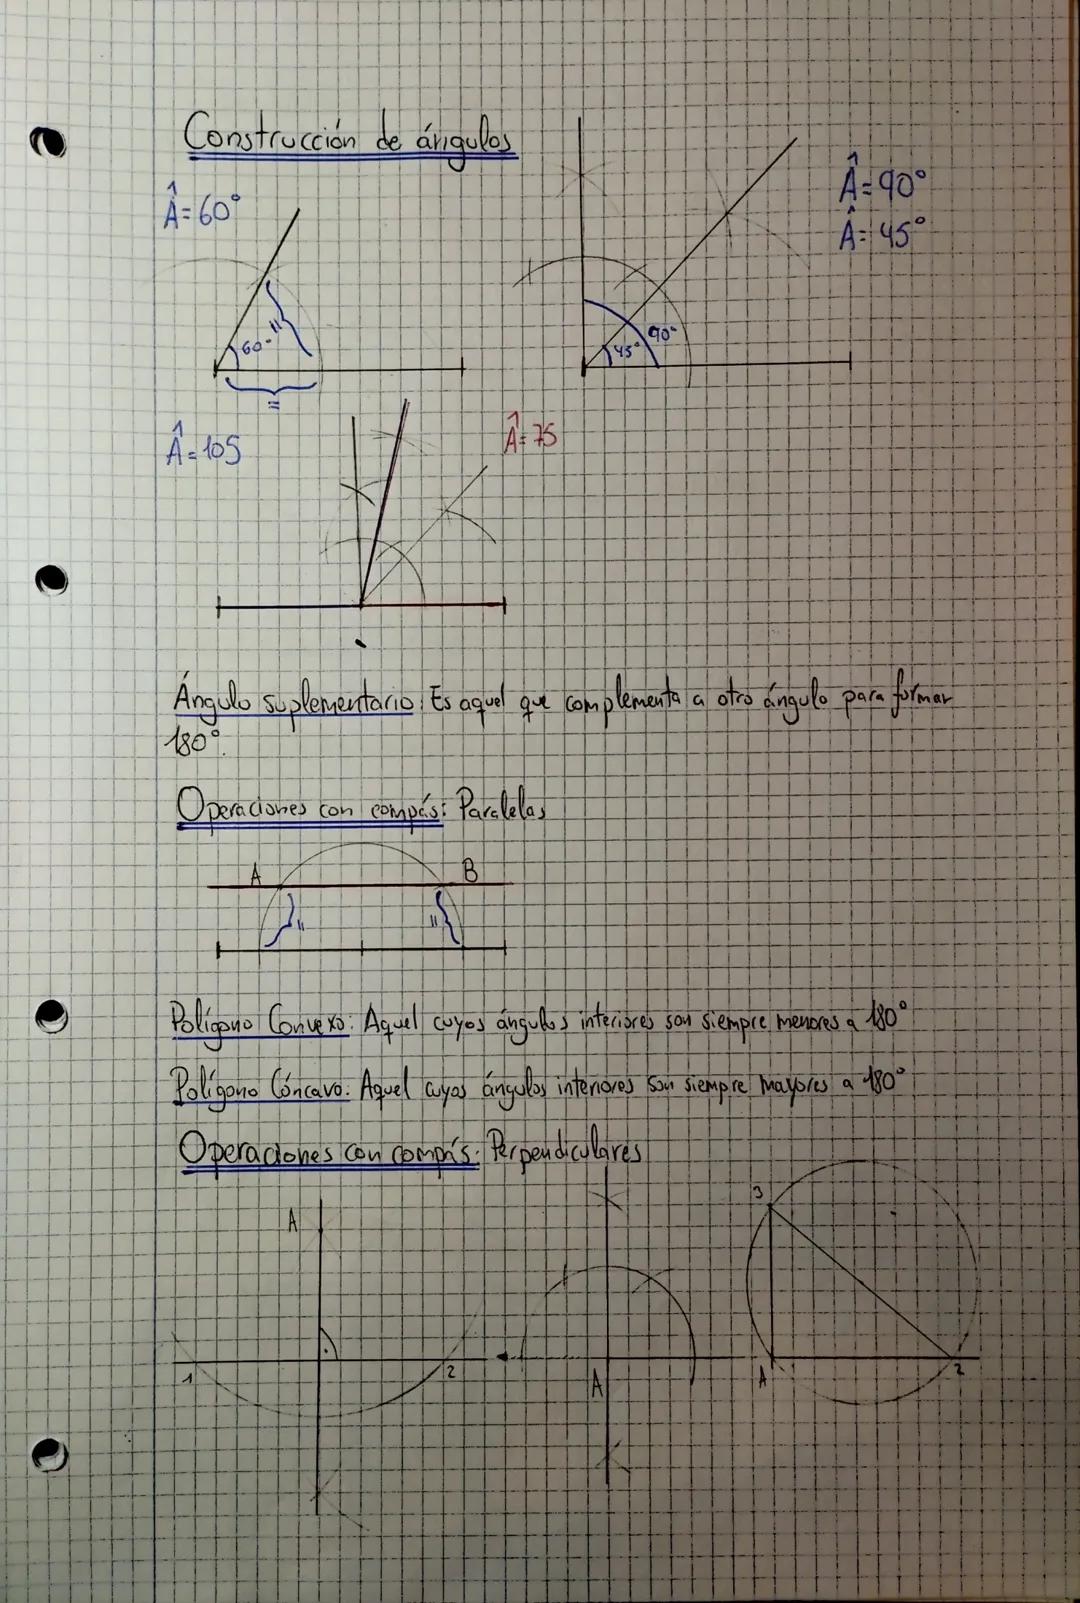 Construcción de ángulos
Â=60°
Â=90°
Â=45°
60°
=
=
90°
45°
Â=105
Â=75
Ángulo suplementario: Es aquel que complementa a otro ángulo para formar
180°.
Operaciones con compás: Paralelas
A
B
=
=
Polígono Convexo: Aquel cuyos ángulos interiores son siempre menores a 180°
Polígono Cóncavo: Aquel cuyos ángulos interiores son siempre mayores a 180°
Operaciones con compás: Perpendiculares
A
3
1
2
A
A
2